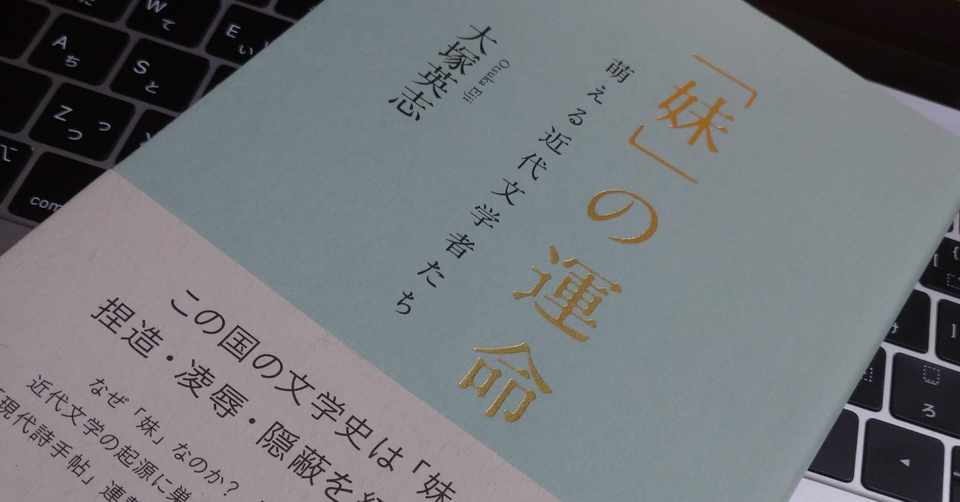 「妹」の運命
萌える近代文学者たち
大塚英志
Otsuka Eiji
この国の文学史は「妹
捏造・凌辱・隠蔽を
なぜ「妹」なのか?
近代文学の起源に巣
現代詩手帖」連
W て
E い
A ち
S と
Z つ
っ
com
ろ